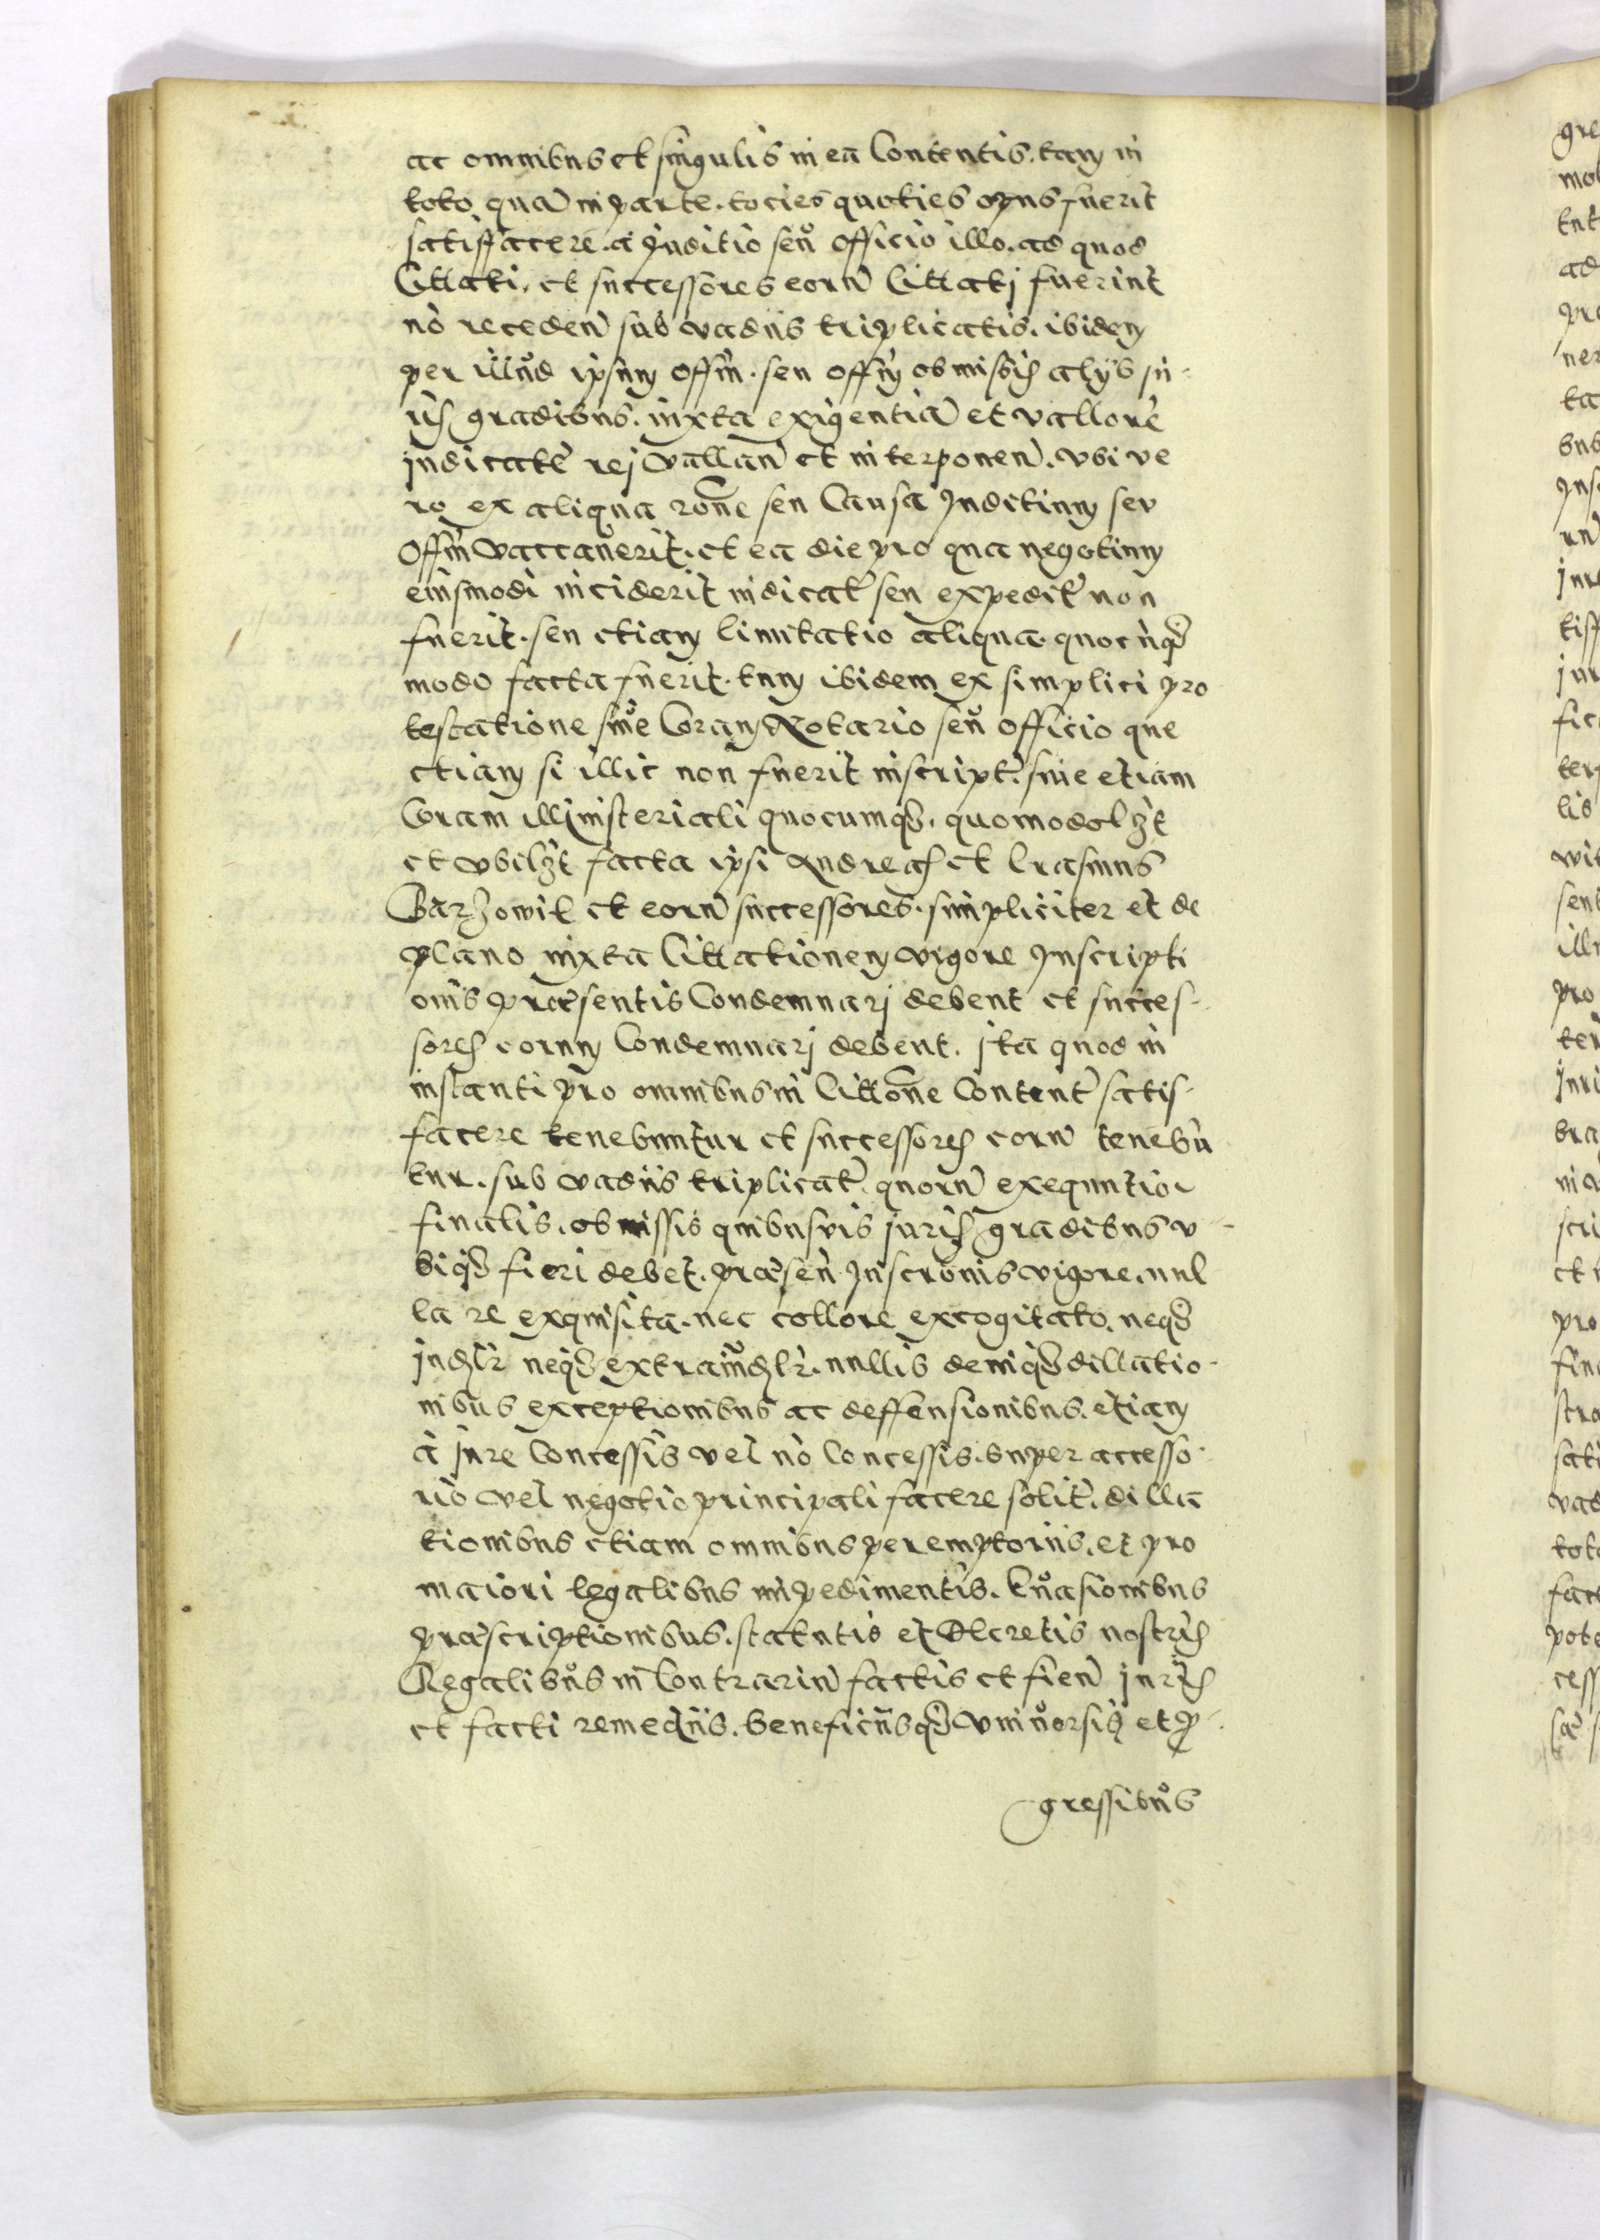 ac omnibus et singulis in ea Contentis. tam in
toto quā in parte. tocies quoties opus fuerit
satisffacere. a Juditio seu officio illo. ad quod
Cittati. et successores eorū Cittatj fuerint
nō receden̄ sub vadiis triplicatis. ibidem
per illud ipsum offm̄. seu offm̄ obmissis alijs ju-
ris gradibus. iuxta exigentiā et vallorē
judicatē rej vallan̄ et interponen̄. vbi ve
ro ex aliqua rōne seu Causa Juditium seu
Offm̄ vaccauerit. et ea die pro qua negotium
eiusmodi inciderit iudicat̄ seu expedit̄ non
fuerit. seu etiam limitatio aliqua. quocūq3
modo facta fuerit. tum ibidem ex simplici pro
testatione siue Coram Notario seu officio que
etiam si illic non fuerit inscript̄. siue etiam
Coram Ministeriali quocumq3. quomodol3t
et vbil3t facta ipsi Andreas et Erasmus
Barzowit et eorū successores. simpliciter et de
plano iuxta Cittationem vigore Inscripti
onis præsentis Condemnarj debent et succes-
sores eorum Condemnarj debent. jta quod in
instanti pro omnibus in Cittōne Content̄ satis-
facere tenebuntur et successores eorū tenebū
tur. sub vadiis triplicat̄. quorū exequutio
finalis. obmissis quibusvis juris gradibus v-
biq3 fieri debet. præsen̄ Inscrōnis vigore. nul
la re exquisita. nec collore excogitato. neq3
jud3lr̄ neq3 extraiud3lr̄. nullis deniq3 dillatio-
nibus exceptionibus ac deffensionibus. etiam
à jure Concessis vel nō Concessis. super accesso-
rio vel negotio principali facere solit̄. dilla
tionibus etiam omnibus peremptoriis. et pro
maiori legalibus impedimentis. Euasionibus
præscriptionibus. statutis et Decretis nostris
Regalibus in Contrariū factis et fien̄ juris
et facti remediis. beneficiisq3 vniuersis et p-
gressibus